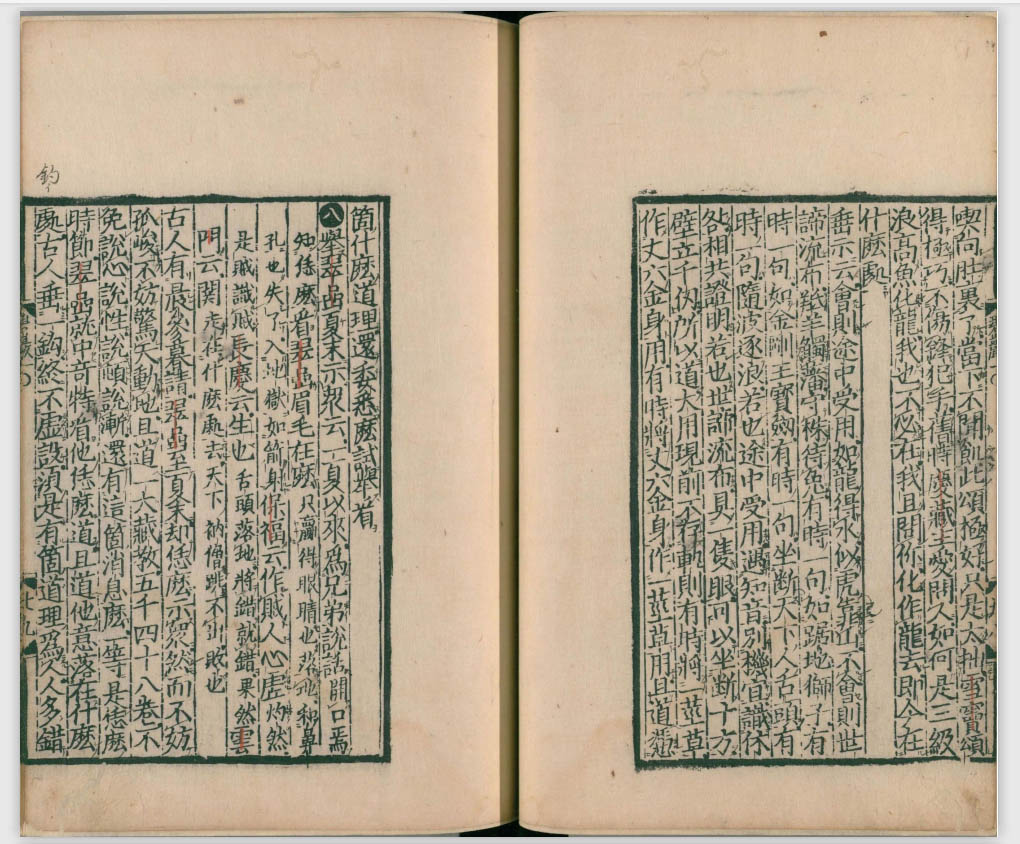 喫向肚裏了當下不聞飢此頌極好只是太拙雪竇頌
得極巧不傷鋒犯手舊時慶藏主愛問人如何是三級
浪高魚化龍我也不必在我且問你化作龍去即今在
什麽處
垂示云會則途中受用如龍得水似虎靠山不會則世
諦流布羝羊觸藩守株待兔有時一句如踞地獅子有
時一句如金剛王寶劍有時一句坐斷天下人舌頭有
時一句隨波逐浪若也途中受用遇知音別機宜識休
咎相共證明若也世諦流布具一隻眼可以坐斷十方
壁立千仞所以道大用現前不存軌則有時將一莖草
作丈六金身用有時將丈六金身作一莖草用且道憑
箇什麽道理還委悉麽試舉看
八舉翠嵒夏末示衆云一夏以來爲兄弟說話開口焉
知恁麽看翠嵒眉毛在麽只贏得眼睛也落地和鼻
孔也失了入地獄如箭射保福云作賊人心虛灼然
是賊識賊長慶云生也舌頭落地將錯就錯果然雲
門云關走在什麽處去天下衲僧跳不出敗也
古人有晨參暮請翠嵒至夏末却恁麽示衆然而不妨
孤峻不妨驚天動地且道一大藏教五千四十八卷不
免說心說性說頓說漸還有這箇消息麽一等是恁麽
時節翠嵒就中奇特看他恁麽道且道他意落在什麽
處古人垂一鈎終不虛設須是有箇道理爲人人多錯
釣